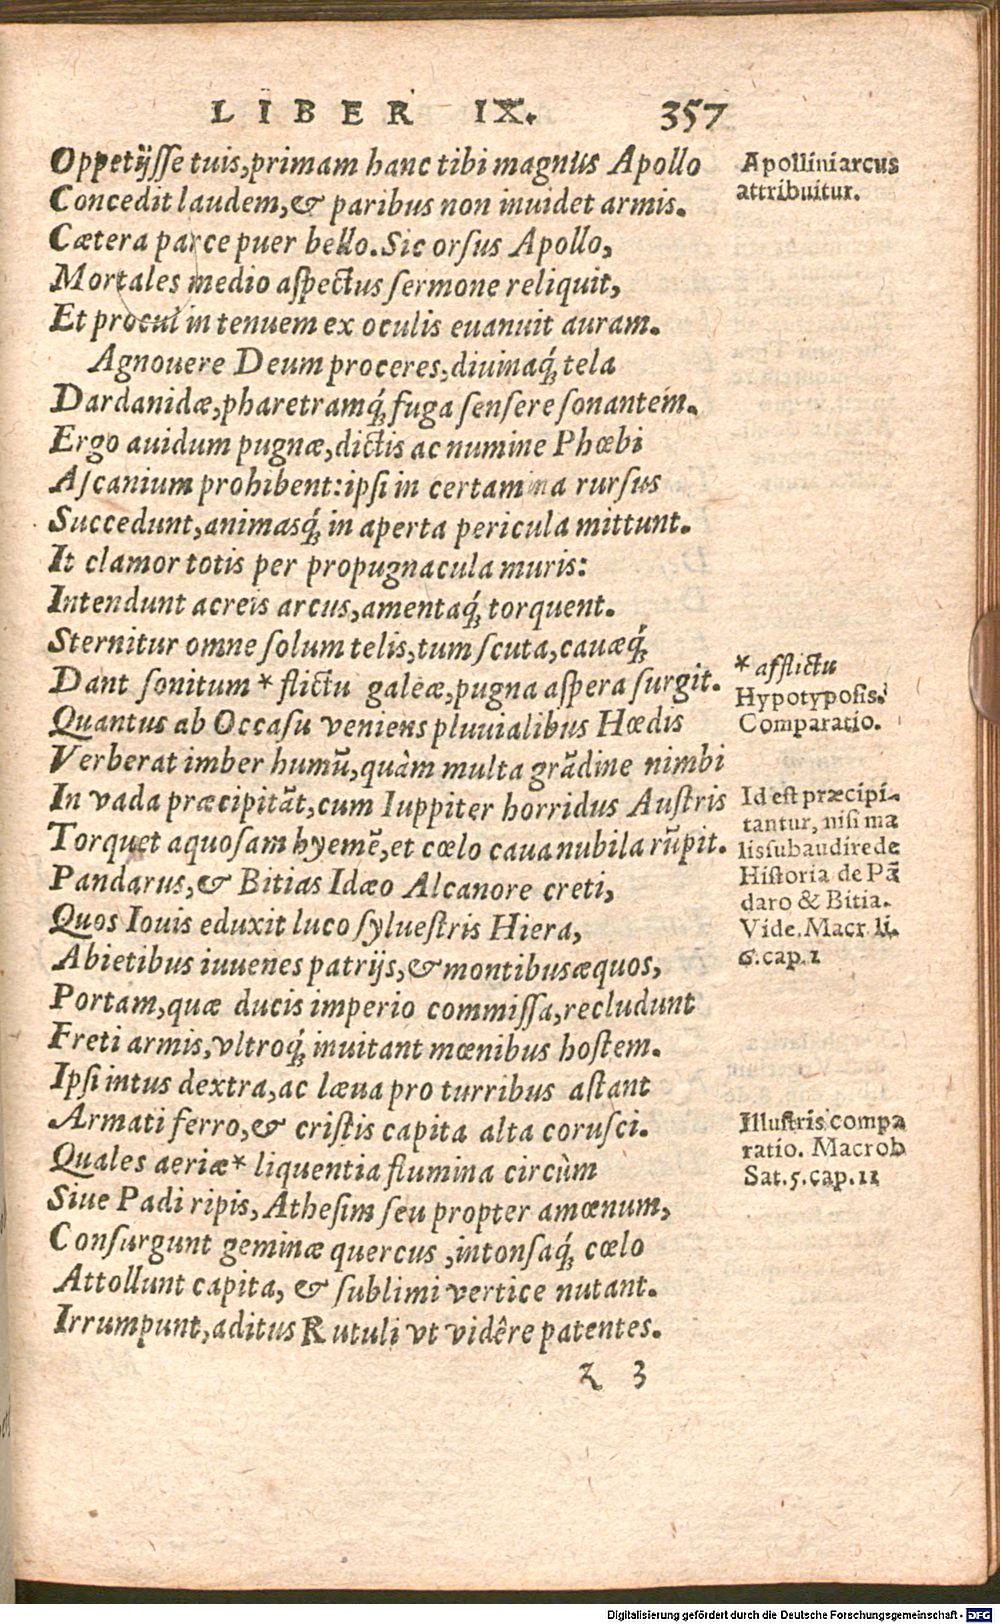 LIBER IX. 357
Oppetijsse tuis, primam hanc tibi magnus Apollo
Concedit laudem, & paribus non inuidet armis.
Cætera parce puer bello. Sic orsus Apollo,
Mortales medio aspectus sermone reliquit,
Et procul in tenuem ex oculis euanuit auram.
Agnouere Deum proceres, diuinaq́; tela
Dardanidæ, pharetramq́; fuga sensere sonantem.
Ergo auidum pugnæ, dictis ac numine Phœbi
Ascanium prohibent: ipsi in certamina rursus
Succedunt, animasq́; in aperta pericula mittunt.
It clamor totis per propugnacula muris:
Intendunt acreis arcus, amentaq́; torquent.
Sternitur omne solum telis, tum scuta, cauæq́;
Dant sonitum * flictu galeæ, pugna aspera surgit.
Quantus ab Occasu veniens pluuialibus Hœdis
Verberat imber humū, quàm multa grādine nimbi
In vada præcipitāt, cum Iuppiter horridus Austris
Torquet aquosam hyemē, et cœlo caua nubila rūpit.
Pandarus, & Bitias Idæo Alcanore creti,
Quos Iouis eduxit luco syluestris Hiera,
Abietibus iuuenes patrijs, & montibus æquos,
Portam, quæ ducis imperio commissa, recludunt
Freti armis, vltroq́; inuitant mœnibus hostem.
Ipsi intus dextra, ac læua pro turribus astant
Armati ferro, & cristis capita alta corusci.
Quales aeriæ * liquentia flumina circùm
Siue Padi ripis, Athesim seu propter amœnum,
Consurgunt geminæ quercus, intonsaq́; cœlo
Attollunt capita, & sublimi vertice nutant.
Irrumpunt, aditus Rutuli vt vidêre patentes.
z 3
Apollini arcus
attribuitur.
* afflictu
Hypotyposis.
Comparatio.
Id est præcipi-
tantur, nisi ma
lis subaudire de
Historia de Pā
daro & Bitia.
Vide. Macr. li.
6. cap. 1
Illustris compa
ratio. Macrob
Sat. 5. cap. 11
Digitalisierung gefördert durch die Deutsche Forschungsgemeinschaft - DFG